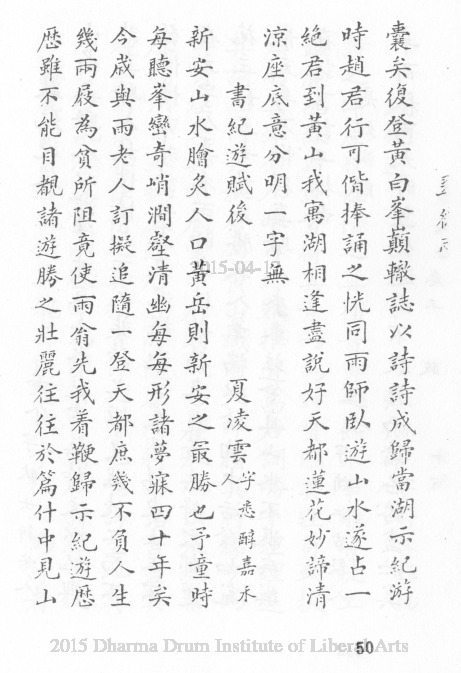 囊矣復登黃白峯巔轍誌以詩詩成歸當湖示紀游
時趙君行可偕捧誦之恍同雨師臥遊山水遂占一
絕君到黃山我寓湖相逢盡說好天都蓮花妙諦清
涼座底意分明一字無
書紀遊賦後
夏凌雲字悉醇嘉永人
新安山水膾炙人口黃岳則新安之最勝也予童時
每聽峯巒奇峭澗壑清幽每每形諸夢寐四十年矣
今歲與雨老人訂擬追隨一登天都庶幾不負人生
幾兩屐為貧所阻竟使雨翁先我着鞭歸示紀遊歷
歷雖不能目覩諸遊勝之壯麗往往於篇什中見山
2015-04-1
2015 Dharma Drum Institute of Liberal Arts
50